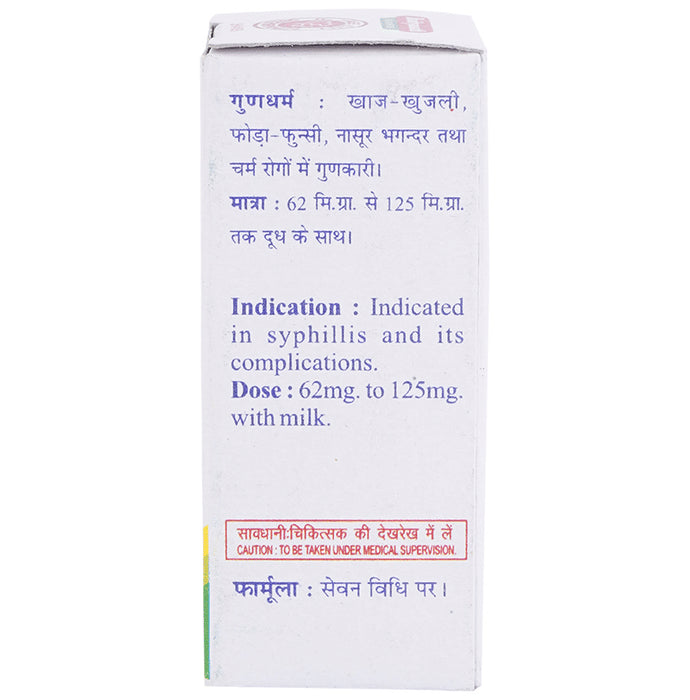 गुणधर्म : खाज-खुजली,
फोड़ा-फुन्सी, नासूर भगन्दर तथा
चर्म रोगों में गुणकारी।
मात्रा : 62 मि.ग्रा. से 125 मि.ग्रा.
तक दूध के साथ।
Indication : Indicated
in syphillis and its
complications.
Dose : 62mg. to 125mg.
with milk.
सावधानी:चिकित्सक की देखरेख में लें
CAUTION : TO BE TAKEN UNDER MEDICAL SUPERVISION.
फार्मूला : सेवन विधि पर।